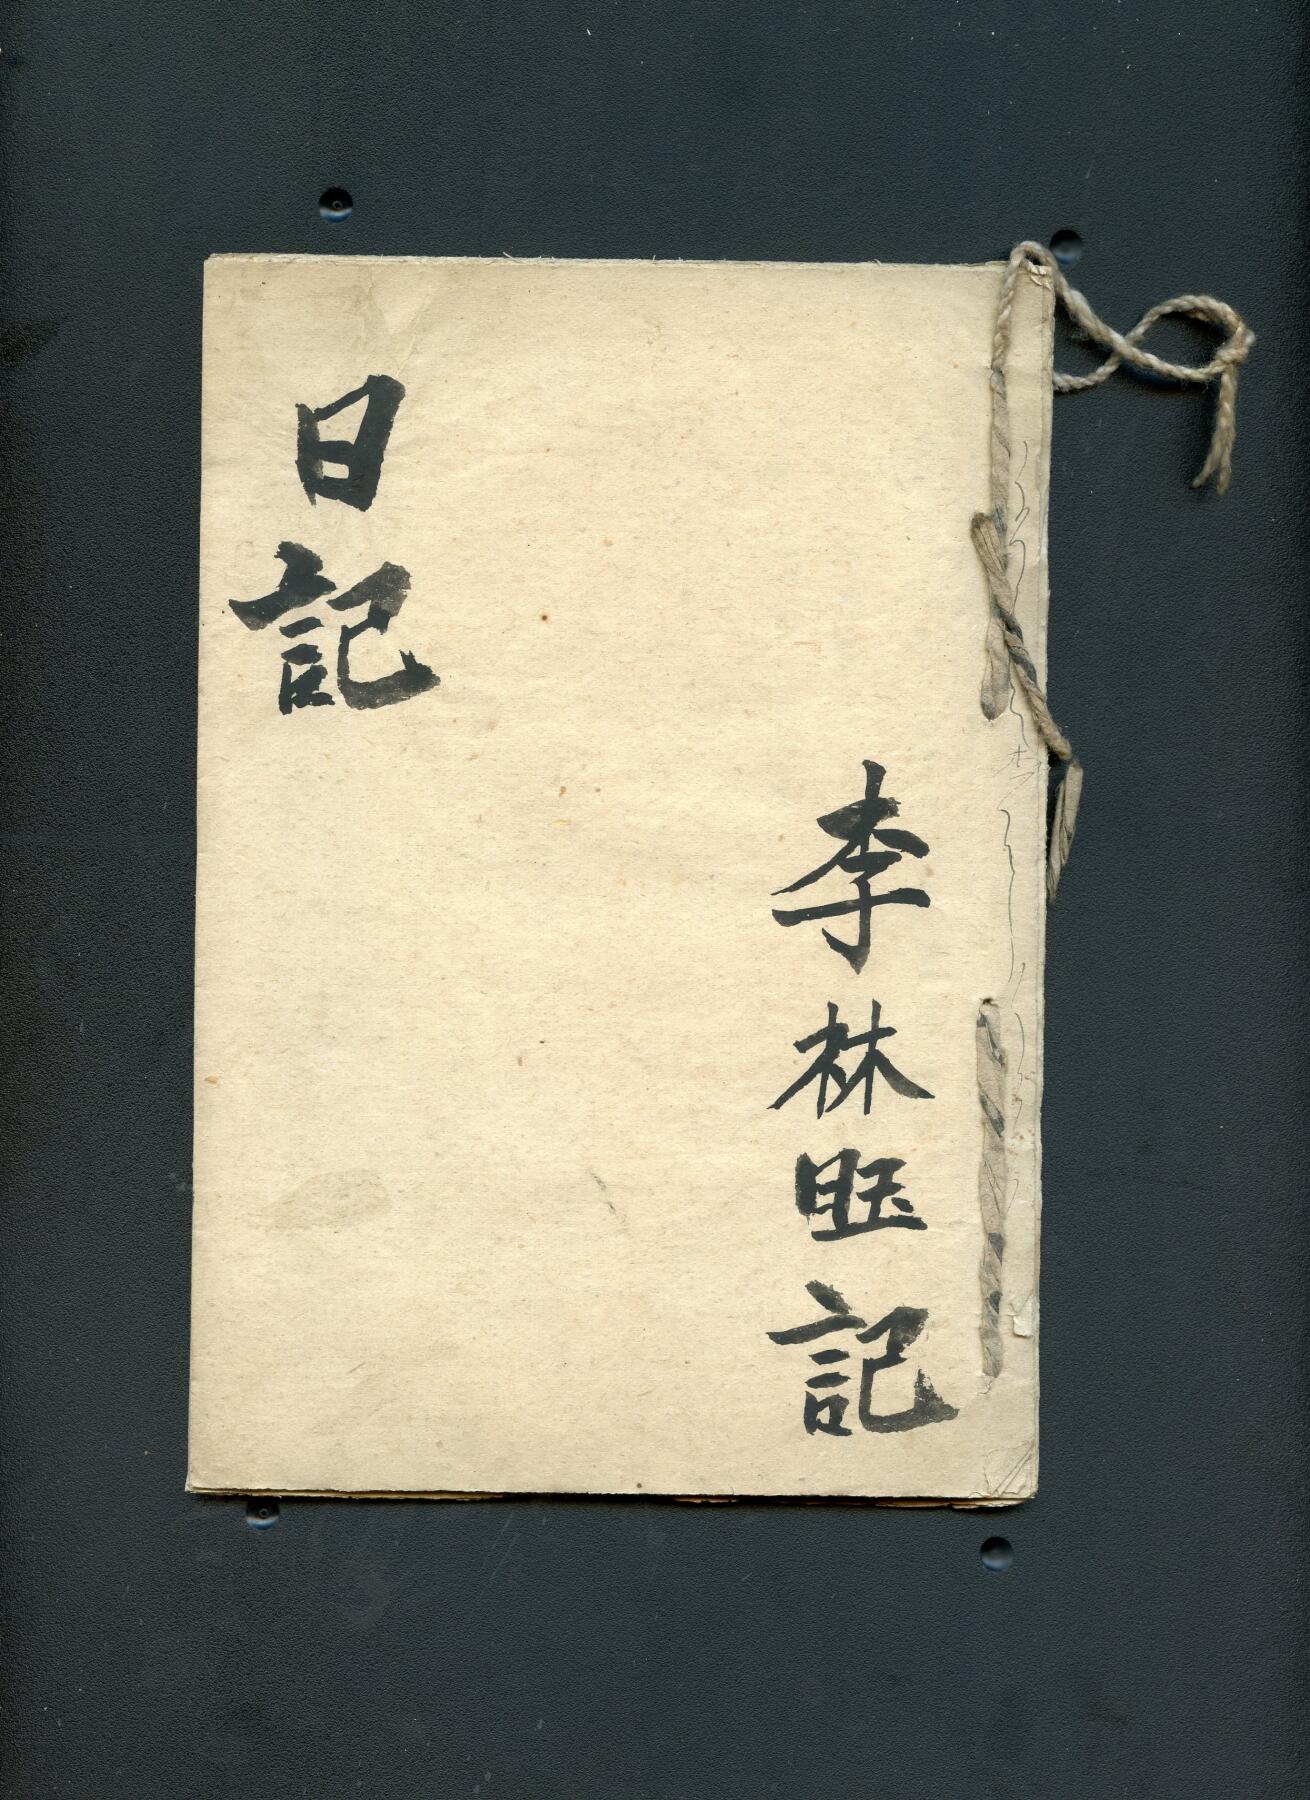 李林旺記
日記